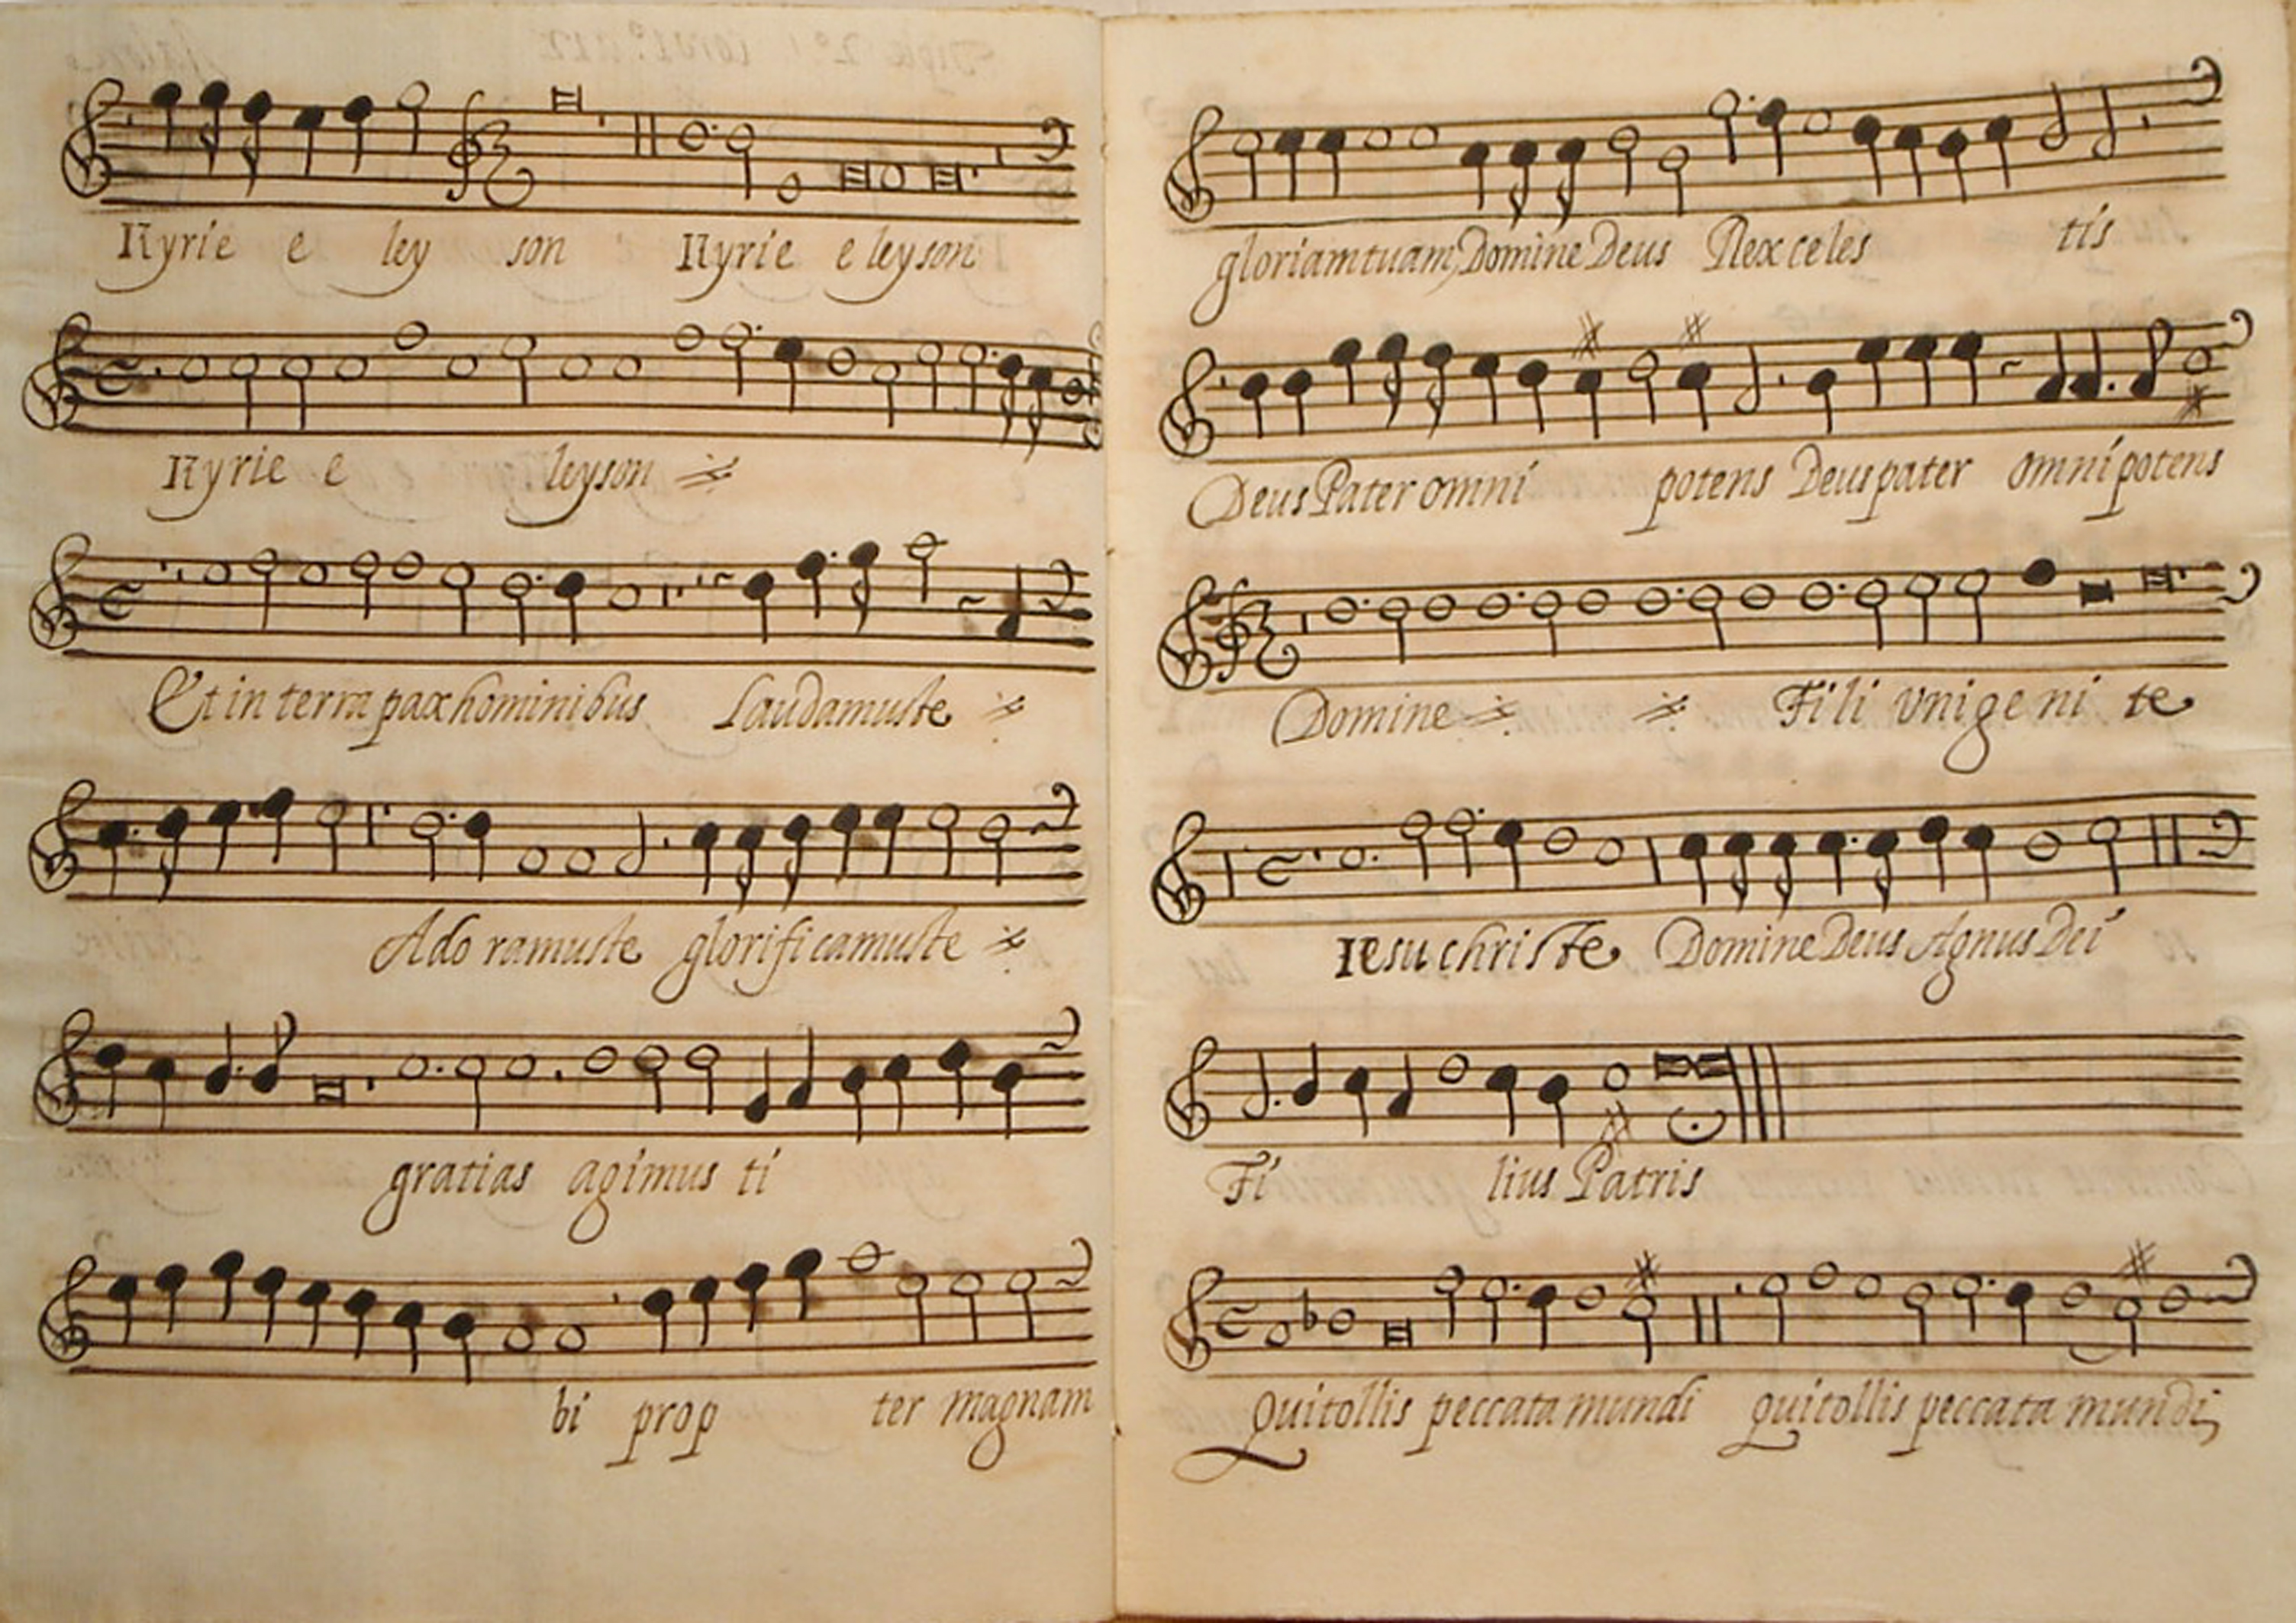 Kyrie e ley son Kyrie e leyson
Kyrie e leyson
Et in terra pax hominibus Laudamuste
Ado ramuste glorificamuste
gratias agimus ti
bi prop ter magnam
gloriam tuam, Domine Deus Rex celes tis
Deus Pater omni potens Deus pater omnipotens
Domine Fili vnige ni te
Iesu christe Domine Deus Agnus Dei
Fi lius Patris
Qui tollis peccata mundi qui tollis peccata mundi,